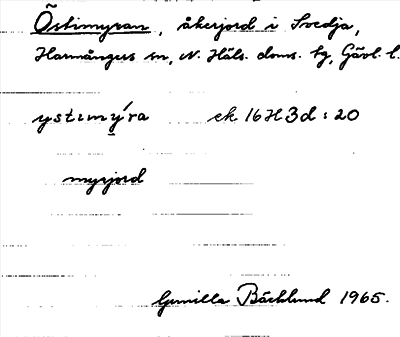 Östimyran, åkerjord i Svedja,
Harmångers sn, N. Häls. doms. hg, Gävl. l.
ystimý̱ra ek 16H3d:20
myrjord
Gunilla Bäcklund 1965.